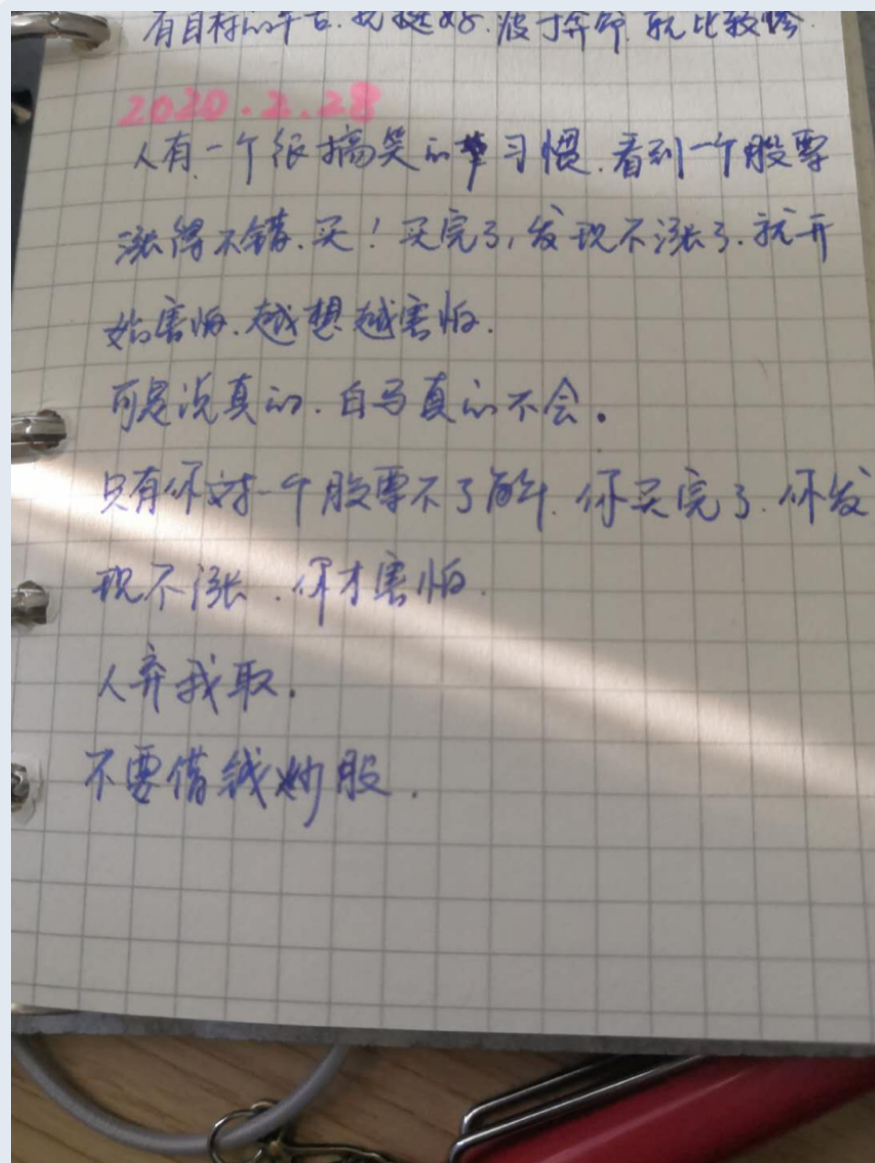 有目标的辛苦.就挺好.疲于奔命.就比较惨.
2020.2.28
人有一个很搞笑的习惯.看到一个股票
涨得不错.买！买完了,发现不涨了.就开
始害怕.越想越害怕.
可是说真的.白马真的不会.
只有你对一个股票不了解.你买完了.你发
现不涨.你才害怕.
人弃我取.
不要借钱炒股.